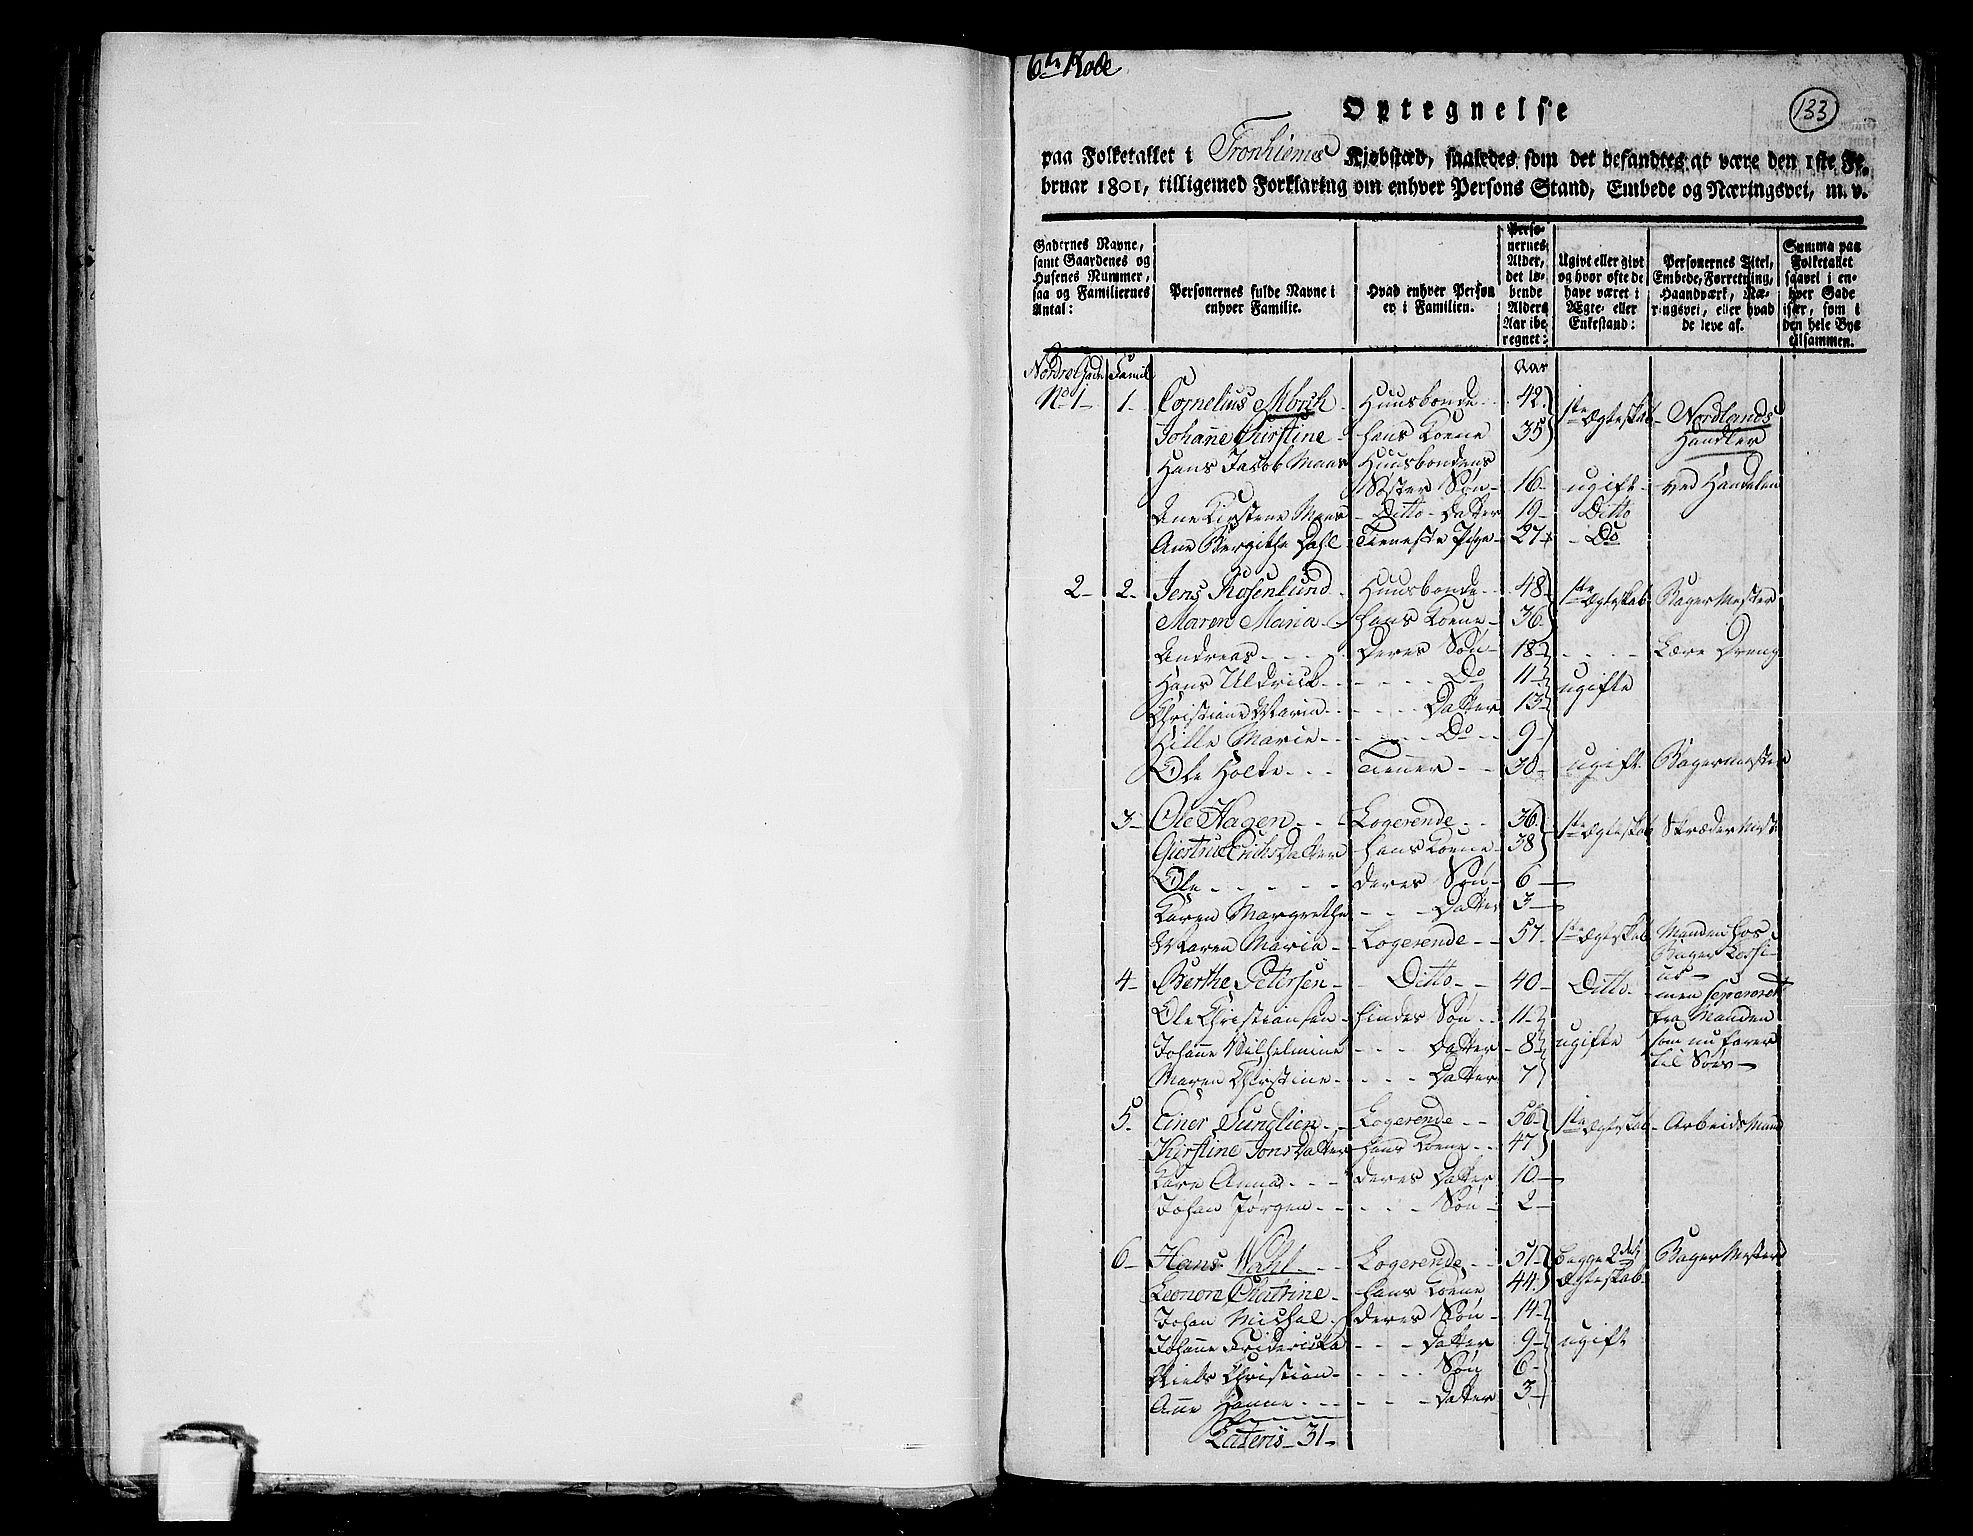 6te Rode
133
Optegnelse
paa Folketallet i Tronhiems Kiøbstæd, saaledes som det befandtes at være den 1ste Fe-
bruar 1801, tilligemed Forklaring om enhver Persons Stand, Embede og Næringsvei, m. v.
Gadernes Navne, samt Gaardenes og Husenes Nummer, saa og Familiernes Antal:
Personernes fulde Navne i enhver Familie.
Hvad enhver Person er i Familien.
Personernes Alder, det løbende Alders Aar iberegnet:
Ugivt eller givt og hvor ofte de have været i Ægte- eller Enkestand:
Personernes Titel, Embede, Forretning, Haandværk, Næringsvei, eller hvad de leve af.
Summa paa Folketallet saavel i enhver Gade især, som i den hele Bye tilsammen.
Nordre Gade Famil Aar
No 1 1 Cornelius Morsh Huusbonde 42 1ste Ægteskab Nordlands
Johane Kirstine hans Koene 35 Handler
Hans Jacob Maas Huusbondens
Søster Søn 16 ugift ved Handelen
Ane Kirstene Maas Ditto Datter 19 Ditto
Ane Bergithe Dahl Tieneste Pige 27 Do
2 2 Jens Rosenlund Huusbonde 48 1ste Ægteskab Bager Mester
Maren Maria hans Koene 36
Andreas deres Søn 18 Lære Dreng
Hans Uldrich Do 11 ugifte
Christiane Maria Datter 13
Hille Marie Do 9
Ole Holte Tiener 30 ugift Bagermester
3 Ole Hagen Logerende 36 1ste Ægteskab Skræder Mest
Giertrud Erichs Datter hans Koene 38
Ole deres Søn 6
Karen Margrethe Datter 3
Maren Maria Logerende 57 1ste Ægteskab Manden hos
Bager Lossi
us
4 Berthe Petersen Ditto 40 Ditto men sepereret
Ole Christiansen hindes Søn 11 fra Manden
Johanne Wilhelmine Datter 8 ugifte som nu farer
Maren Christine Datter 7 til Søes
5 Einer Sundlien Logerende 56 1ste Ægteskab Arbeids Mand
Kirstine Jons Datter hans Koene 47
Kare Anna deres Datter 10
Johan Jørgen Søn 2
6 Hans Wahl Logerende 51 begge 2det Bager Mester
Leonora Catrine hans Koene 44 Ægteskab
Johan Michal deres Søn 14
Johanne Fridericka Datter 9 ugift
Niels Christian Søn 6
Anne Hanne Datter 3
Lateris 31